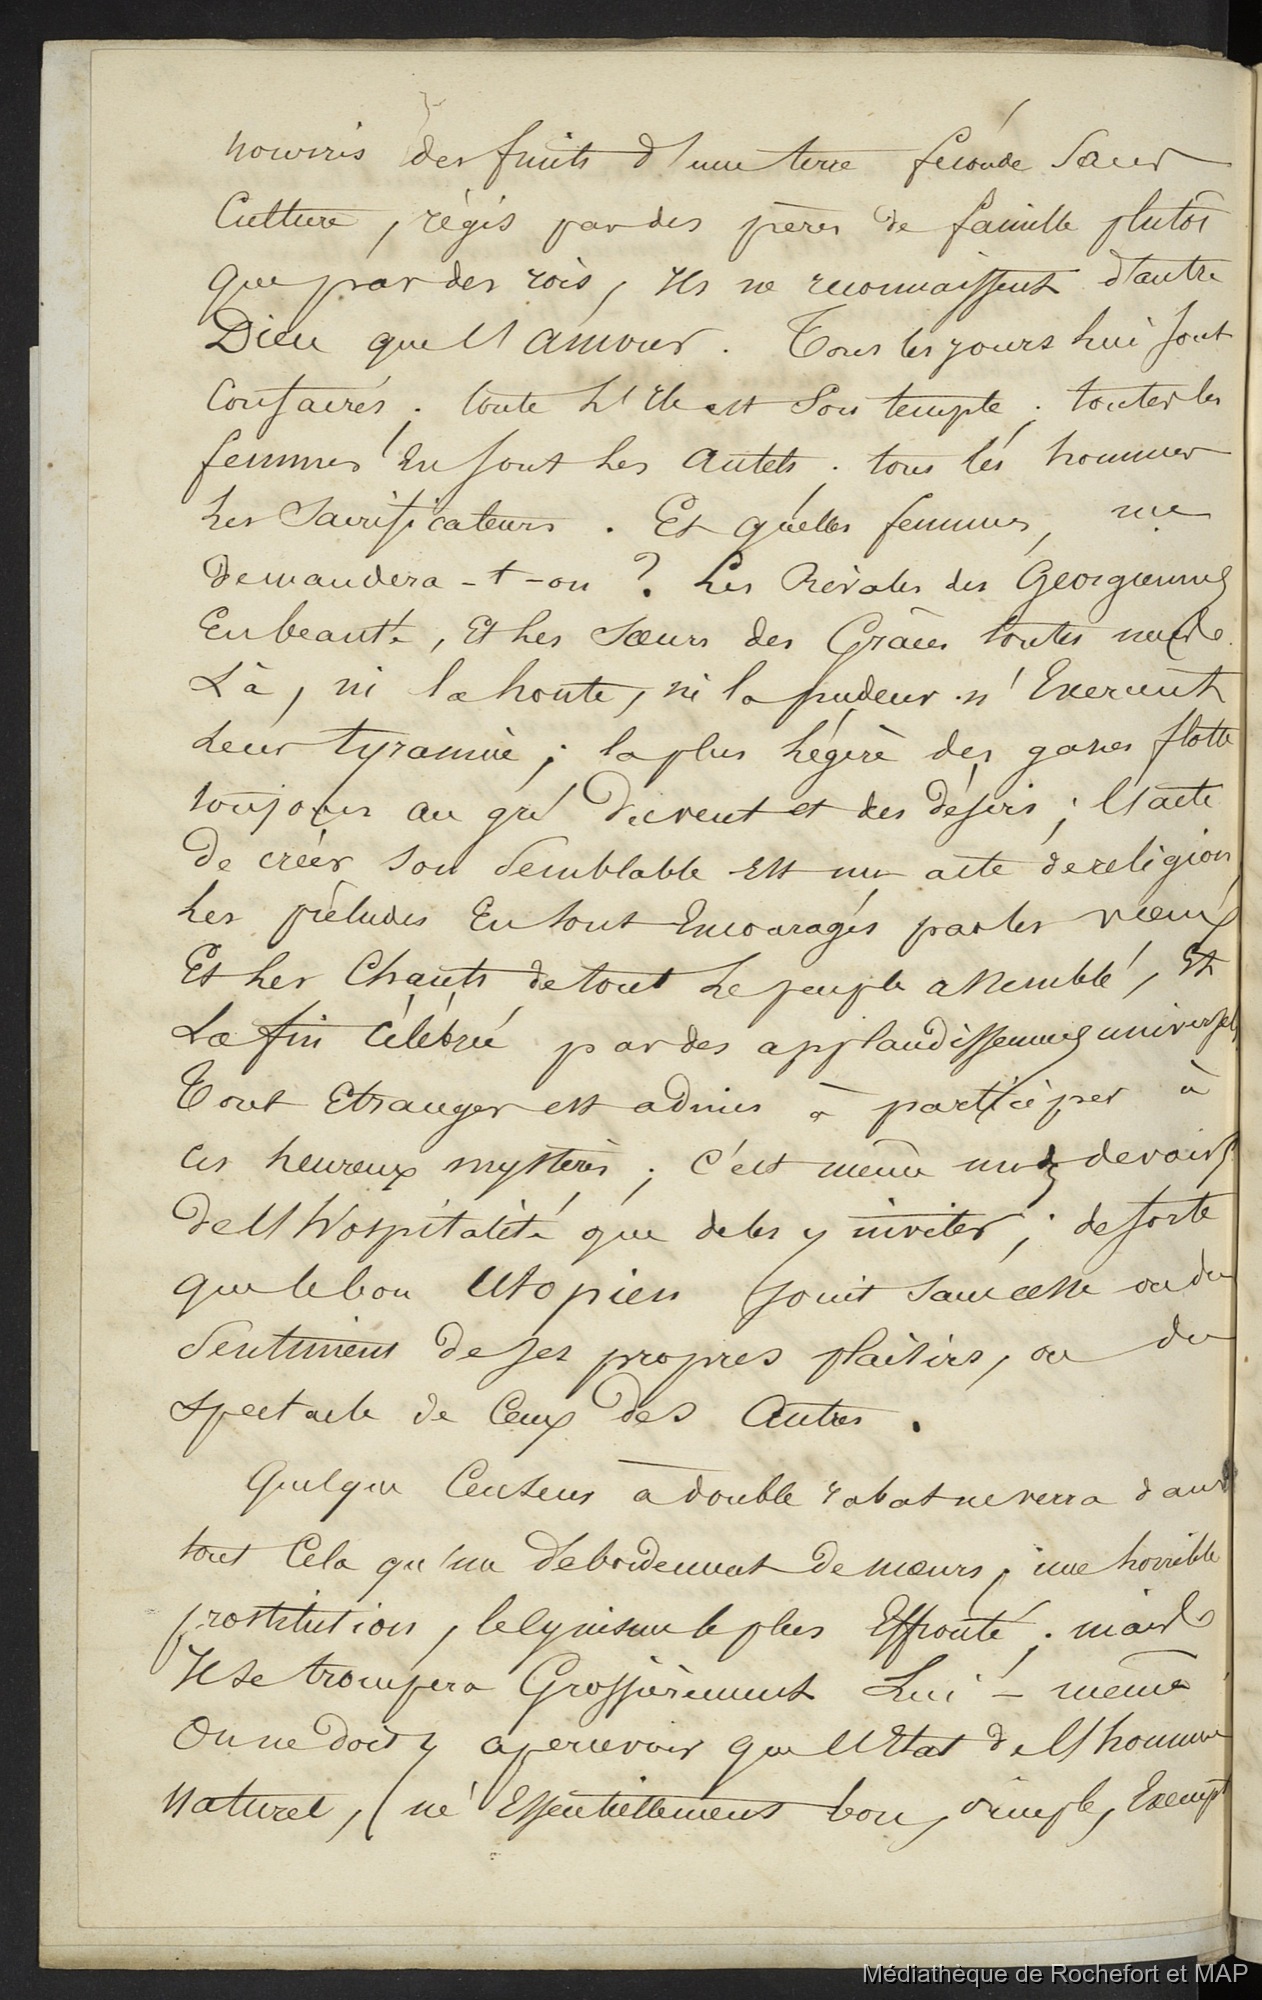 nourris des fruits d'une terre féconde sans
Culture, régis par des pères de famille plutôt
que par des rois, Ils ne reconnaissent d'autre
Dieu que l'amour. Tous les jours lui sont
Consacrés, toute l'Ile est Son temple, toutes les
femmes en sont les autels, tous les hommes
les Sacrificateurs. Et quelles femmes, me
demandera-t-on ? Les Rivales des Georgiennes
En beauté, Et les Sœurs des Grâces toutes nues.
Là, ni la honte, ni la pudeur n'Exercent
leur tyrannie ; la plus légère des gazes flotte
toujours au gré du vent et des désirs ; l'acte
de créer son Semblable Est un acte de religion
les préludes En sont Encouragés par les vœux
Et les Chants de tout le peuple assemblé, Et
La fin célébrée par des applaudissemens universels
Tout Etranger est admis à participer à
ces heureux mystères ; c'est même un des devoirs
de l'hospitalité que de les y inviter ; de sorte
que le bon Utopien jouit sans cesse ou du
Sentiment de ses propres plaisirs, ou du
spectacle de Ceux des Autres.
Quelque Censeur à double rabat ne verra dans
tout Cela qu'un débordement de mœurs, une horrible
prostitution, le cynisme le plus Effronté ; mais
Il se trompera Grossièrement Lui-même
On ne doit y apercevoir que l'Etat de l'homme
Naturel, né Essentiellement bon, simple, Exempt
Médiathèque de Rochefort et MAP